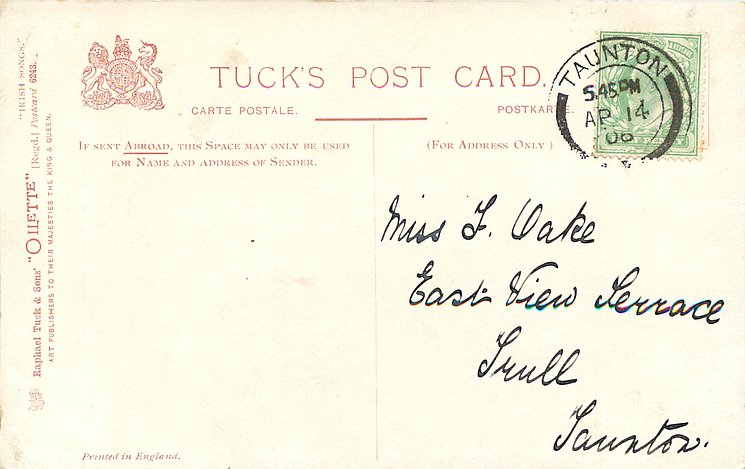 "IRISH SONGS."
"OILETTE" [Regd.] Postcard 6243.
Raphael Tuck & Sons'
ART PUBLISHERS TO THEIR MAJESTIES THE KING & QUEEN.
TUCK'S POST CARD.
CARTE POSTALE. POSTKARTE
TAUNTON
5.45PM
AP 14
06
IF SENT ABROAD, THIS SPACE MAY ONLY BE USED
FOR NAME AND ADDRESS OF SENDER.
(FOR ADDRESS ONLY)
Miss F. Oake
East View Terrace
Trull
Taunton.
Printed in England.